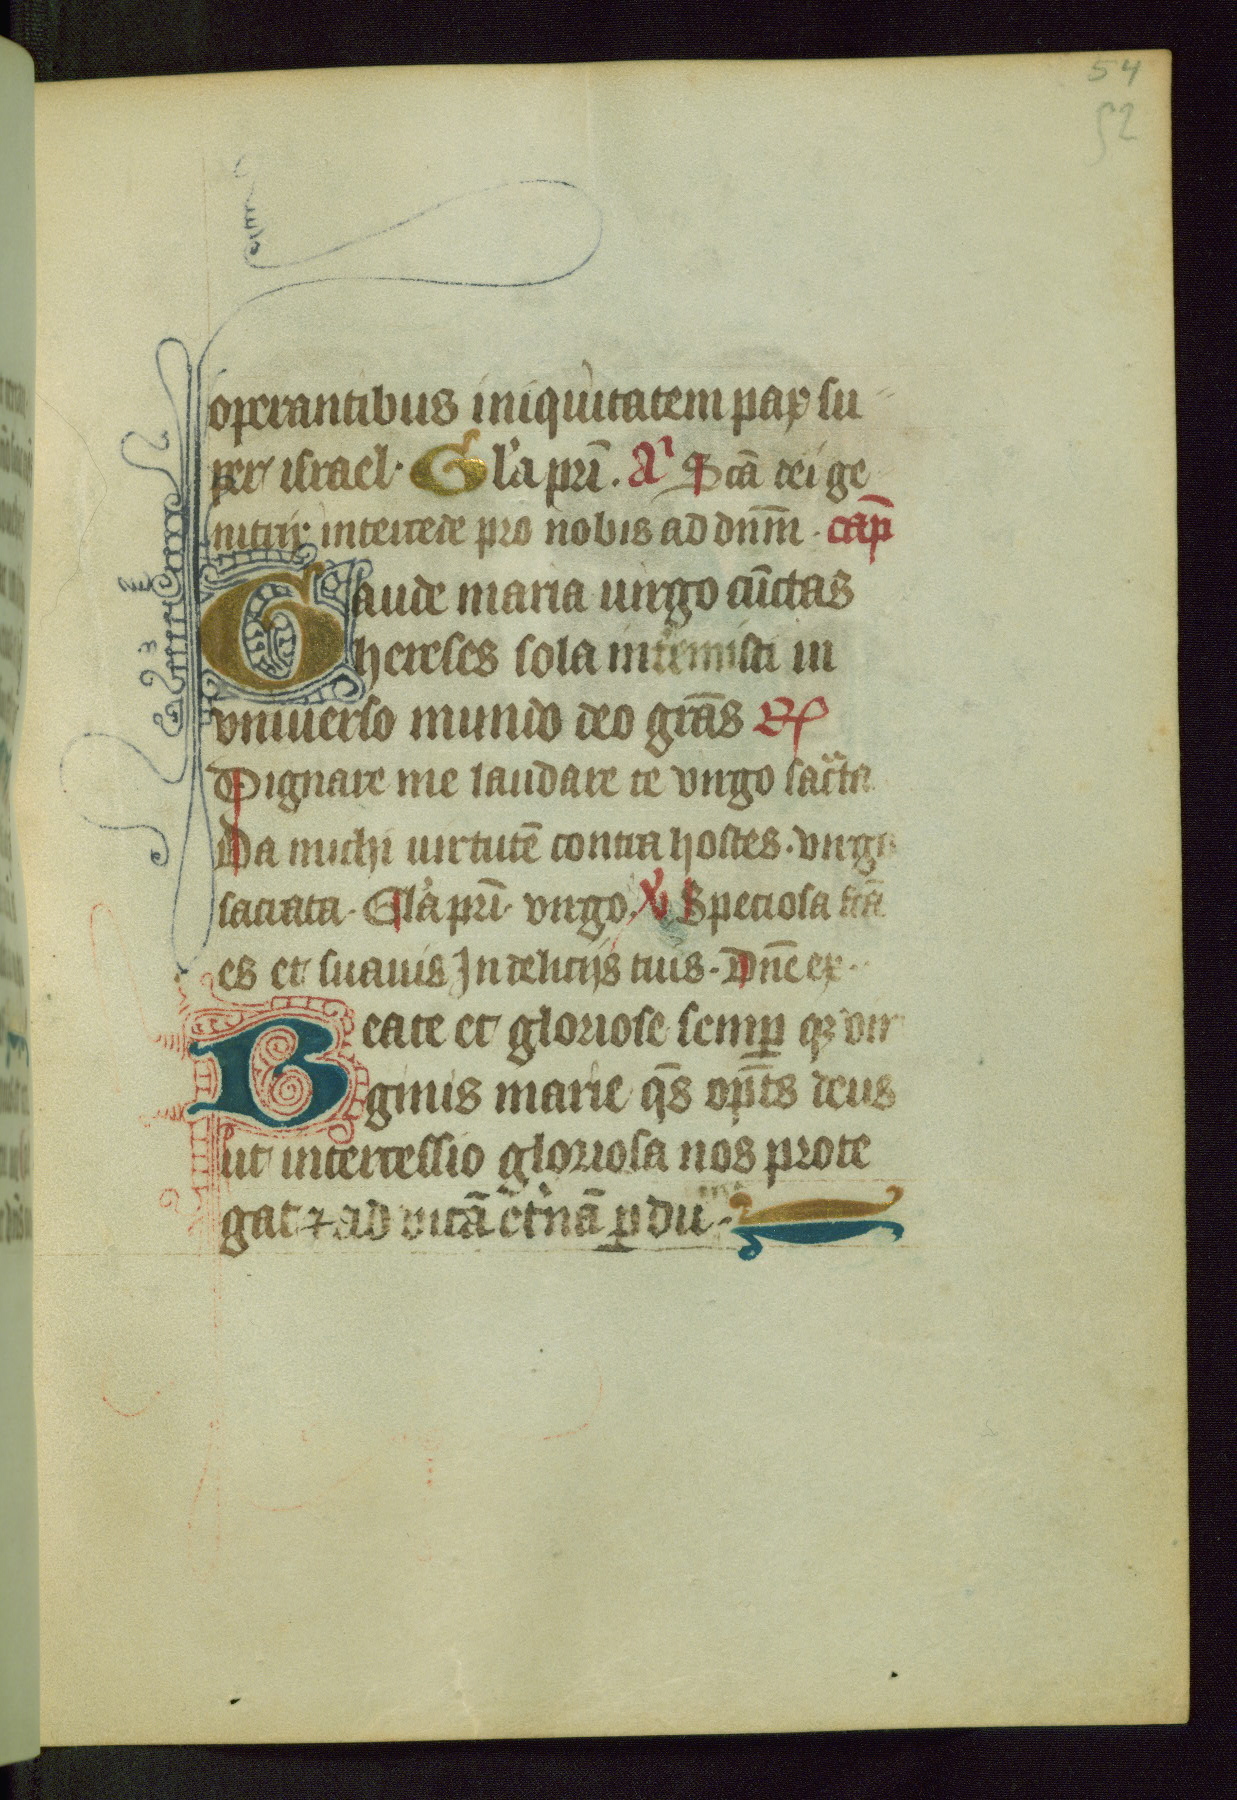 54
52
operantibus iniquitatem pax su
per israel. Gl'a pri̅. A' Sca̅ dei ge
nitrix intercede pro nobis ad dn̅m̅. cap̅
Gaude maria uirgo cu̅ctas
hereses sola intemisti in
vniuerso mundo deo gra̅s R̷
Dignare me laudare te virgo sac̅ta
Da michi uirtute̅ contra hostes. virgo
sacrata. Gl'a pri̅. virgo. V̷ Speciosa fc̅a
es et suauis In delicijs tuis. Dn̅e ex.
Beate et gloriose semp̲ q̷ vir
ginis marie q̅s op̅t̅s deus
ut intercessio gloriosa nos prote
gat ⁊ ad vita̅ et'na̅ p̲du.